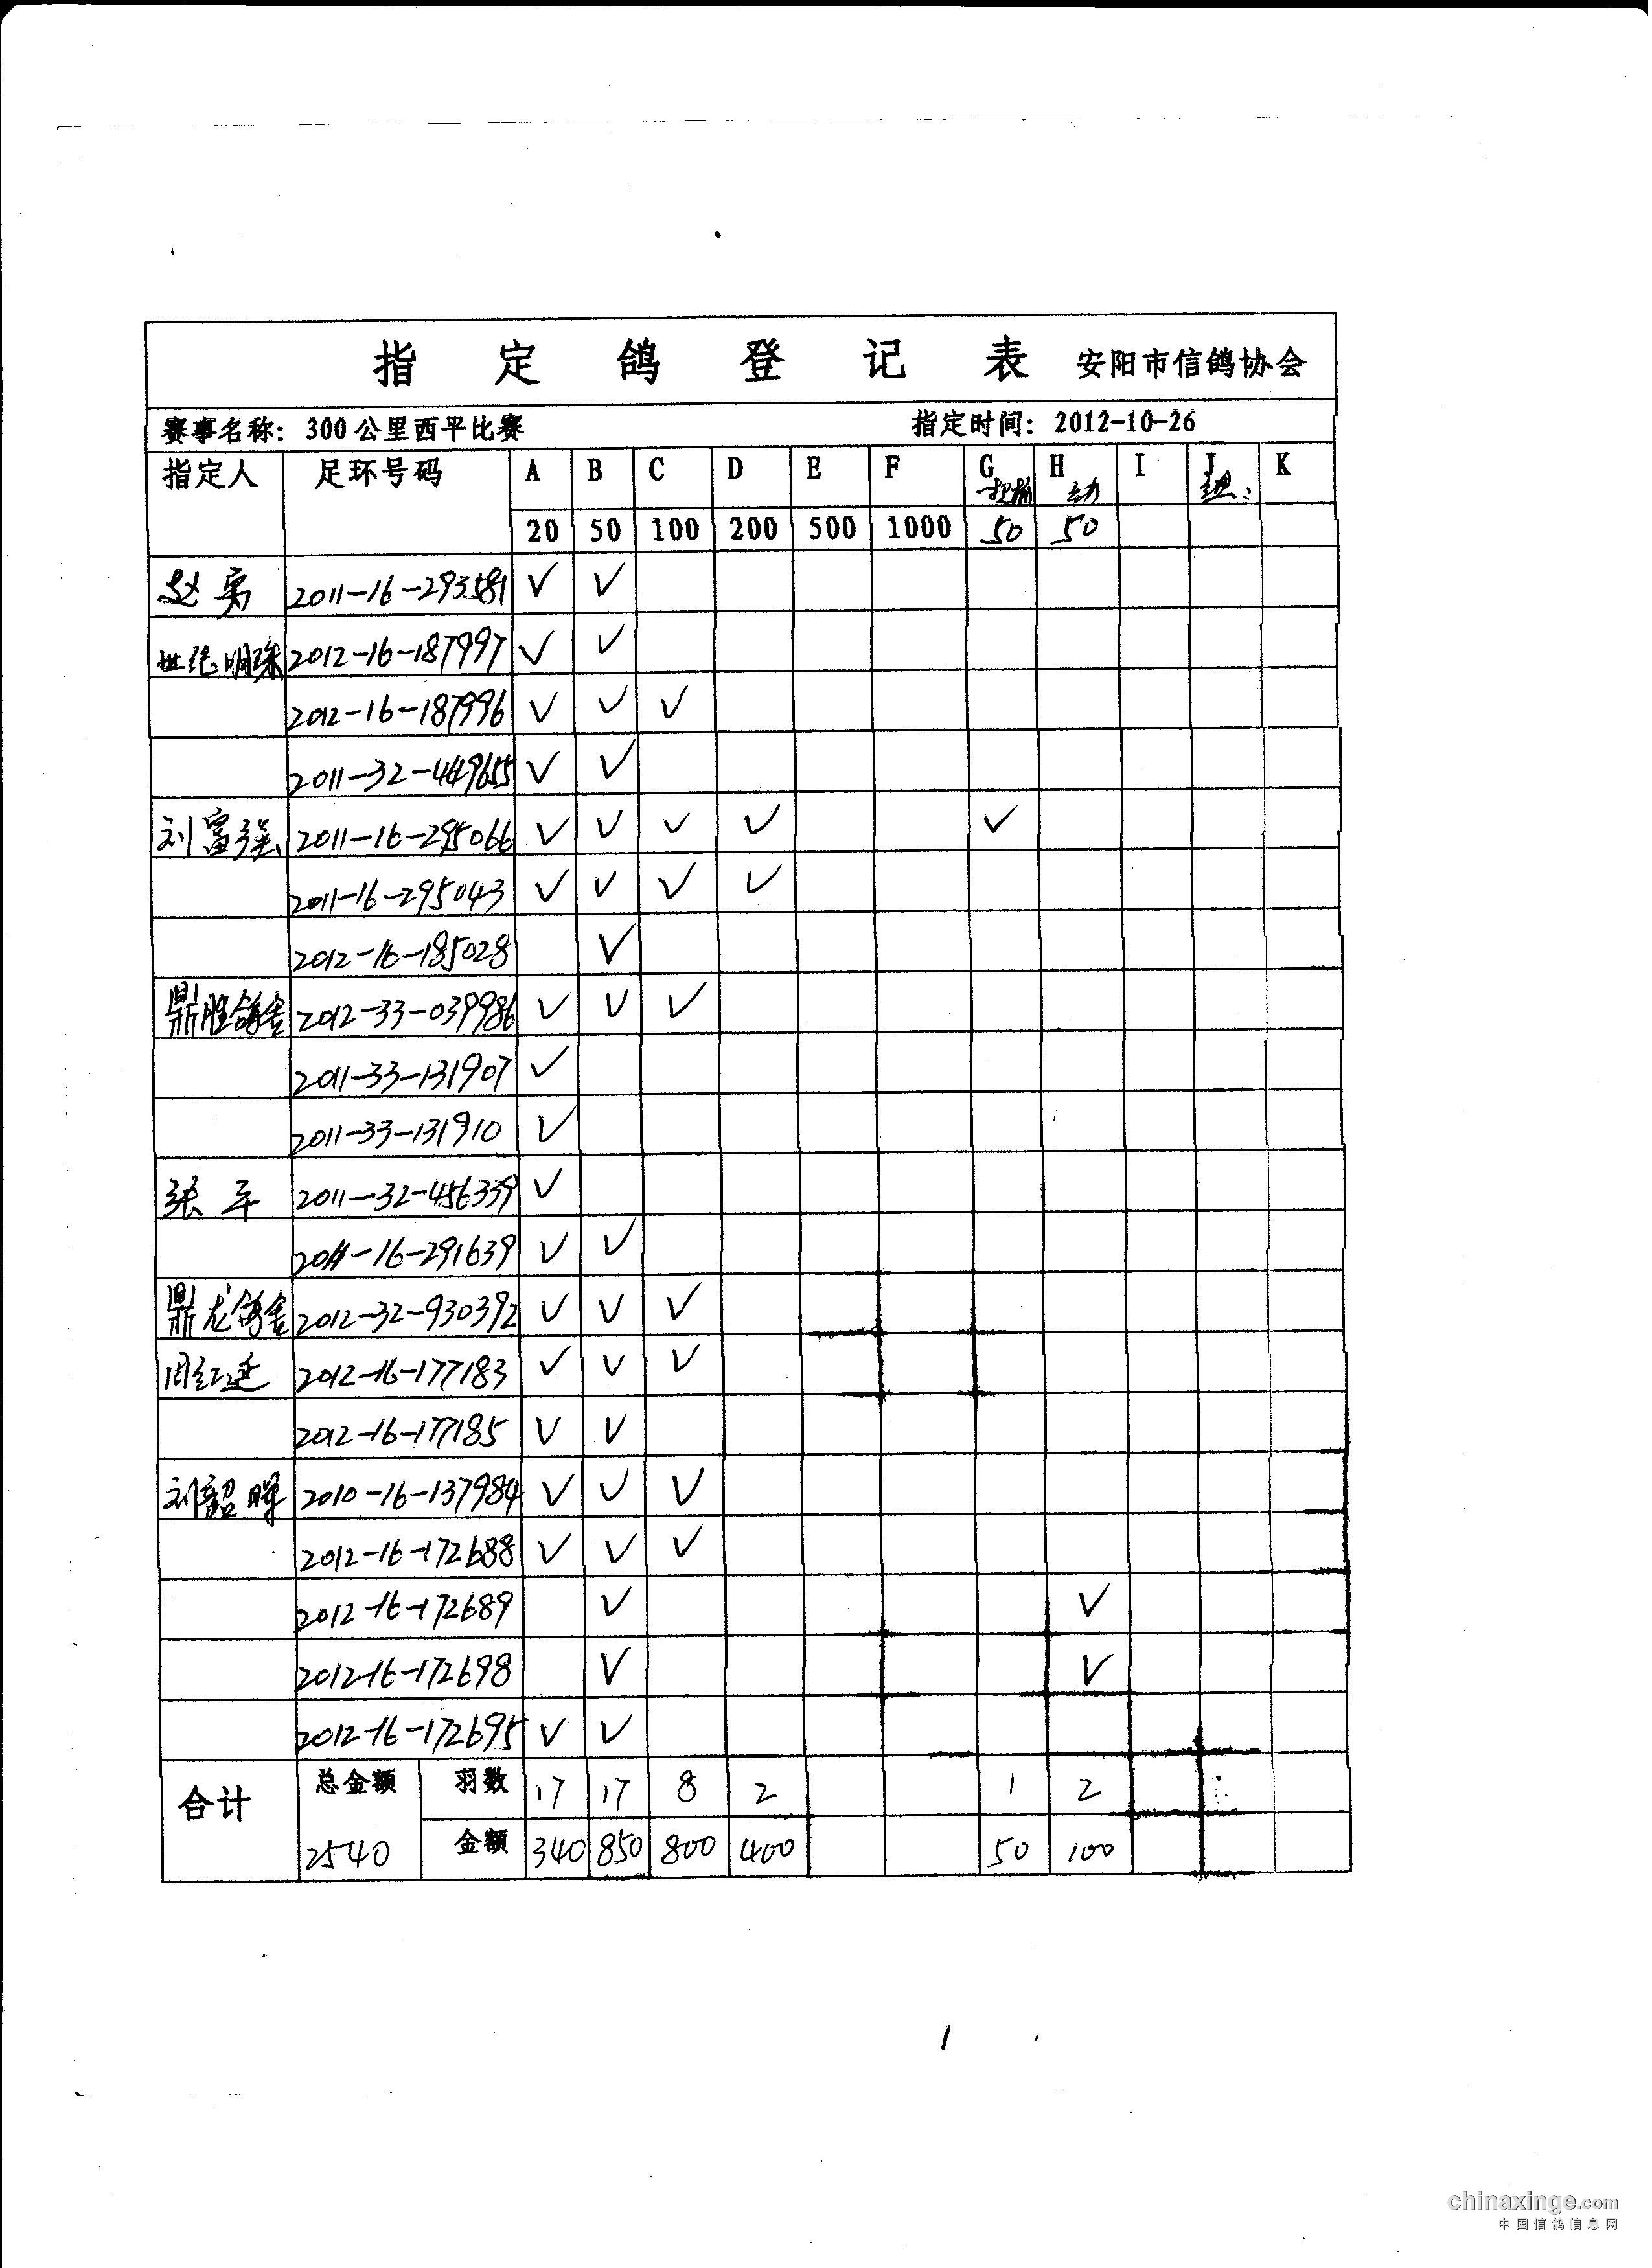 指定鸽登记表 安阳市信鸽协会
赛事名称：300公里西平比赛 指定时间：2012-10-26
指定人 足环号码 A B C D E F G H I J K
20 50 100 200 500 1000 50 50
赵勇 2011-16-293581 √ √
2012-16-187997 √ √
2012-16-187996 √ √ √
2011-32-449655 √ √
刘富强 2011-16-295066 √ √ √ √ √
2011-16-295043 √ √ √ √
2012-16-185028 √
鼎胜鸽舍 2012-33-039986 √ √ √
2011-33-131907 √
2011-33-131910 √
张军 2011-32-456339 √
2011-16-291639 √ √
鼎龙鸽舍 2012-32-930392 √ √ √
周红延 2012-16-177183 √ √ √
2012-16-177185 √ √
刘韶晖 2010-16-137984 √ √ √
2012-16-172688 √ √ √
2012-16-172689 √ √
2012-16-172698 √ √
2012-16-172695 √ √
合计 总金额 羽数 17 17 8 2 1 2
2540 金额 340 850 800 400 50 100
1
chinaxinge.com
中国信鸽信息网